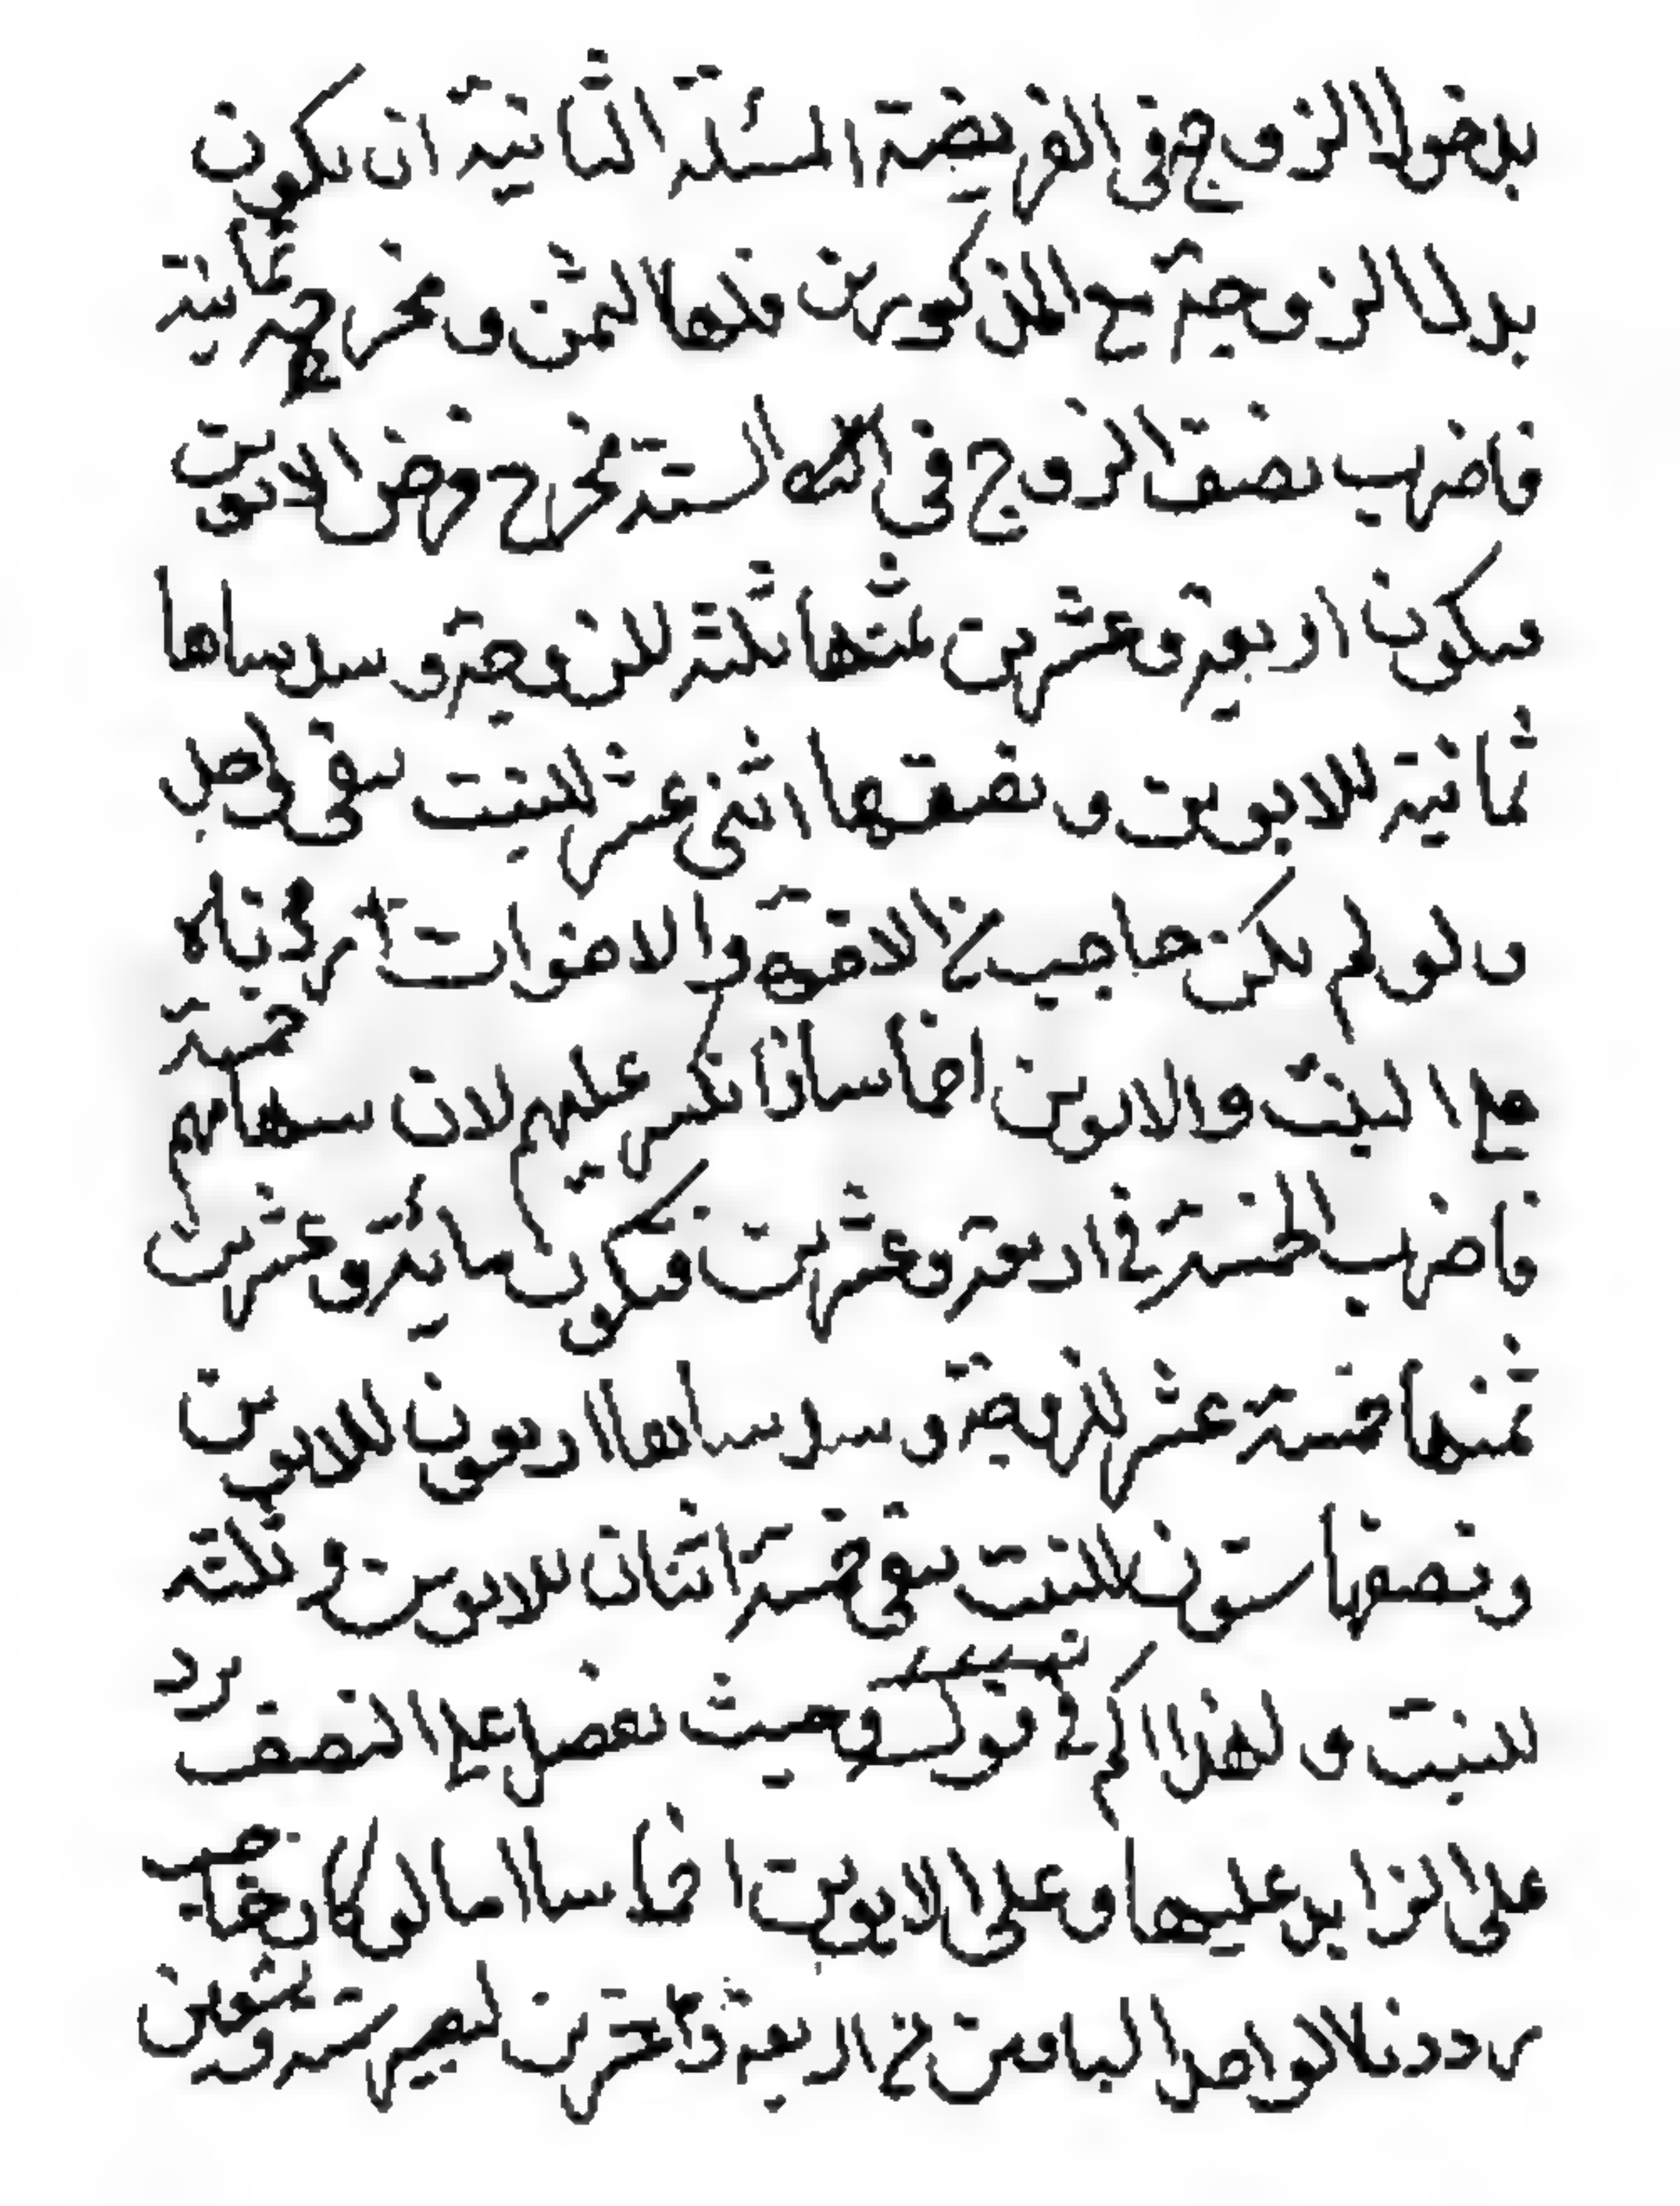 بدخول الزوج في الفريضة المسئلة الثانية ان يكون
بدل الزوجة مع المذكورين فلها الثمن ومخرجه ثمانية
فاضرب نصف الزوج في الستة مخرج فرض الابوين
فيكون اربعة وعشرين ثمنها ثلثة للزوجة وسدساها
ثمانية للابوين ونصفها اثنى عشر للبنت يبقى واحد
ولو لم يكن حاجب من الاخوة والاخوات رددناه
على البنت والابوين اخماسا انكسر عليهم لان سهامهم خمسة
فاضرب الخمسة في اربعة وعشرين فيكون مائة وعشرين
ثمنها خمسة عشر للزوجة وسدساها اربعون للابوين
ونصفها ستون للبنت يبقى خمسة اثنان للابوين وثلثة
للبنت ولهذا في قوله وحيث يفضل على النصف يرد
على الزايد عليها وعلى الابوين اخماسا اما لو كان حاجب
رددنا الواحد الباقي من اربعة وعشرين ليصير ستة وتسعين